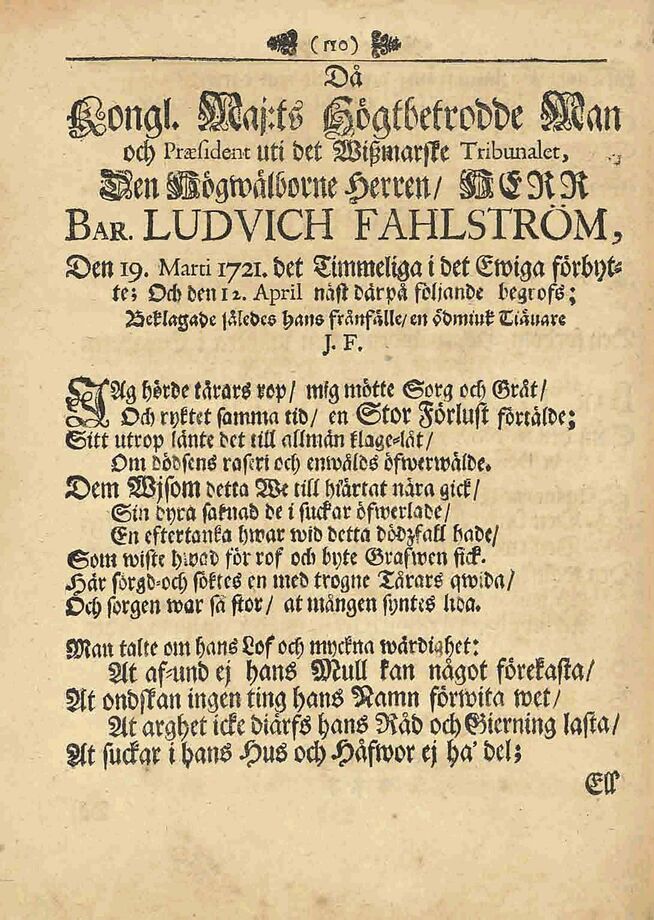 (110)
Då
Kongl. Maj:ts Högtbetrodde Man
och Præsident uti det Wißmarske Tribunalet,
Den Högwälborne Herren/ HERR
BAR. LUDVICH FAHLSTRÖM,
Den 19. Marti 1721. det Timmeliga i det Ewiga förbyt-
te; Och den 12. April näst därpå följande begrofs;
Beklagade således hans frånfälle/ en ödmiuk Tiänare
J. F.
JAg hörde tårars rop/ mig mötte Sorg och Gråt/
Och ryktet samma tid/ en Stor Förlust förtälde;
Sitt utrop länte det till allmän klage-låt/
Om dödsens raseri och enwålds öfwerwälde.
Dem Wjsom detta We till hiärtat nära gick/
Sin dyra saknad de i suckar öfwerlade/
En eftertanka hwar wid detta dödzfall hade/
Som wiste hwad för rof och byte Grafwen fick.
Här sörgd-och söktes en med trogne Tårars qwida/
Och sorgen war så stor/ at mången syntes lida.
Man talte om hans Lof och myckna wärdighet:
At af-und ej hans Mull kan något förekasta/
At ondskan ingen ting hans Namn förwita wet/
At arghet icke diärfs hans Råd och Gierning lasta/
At suckar i hans Hus och Håfwor ej ha' del;
Ell